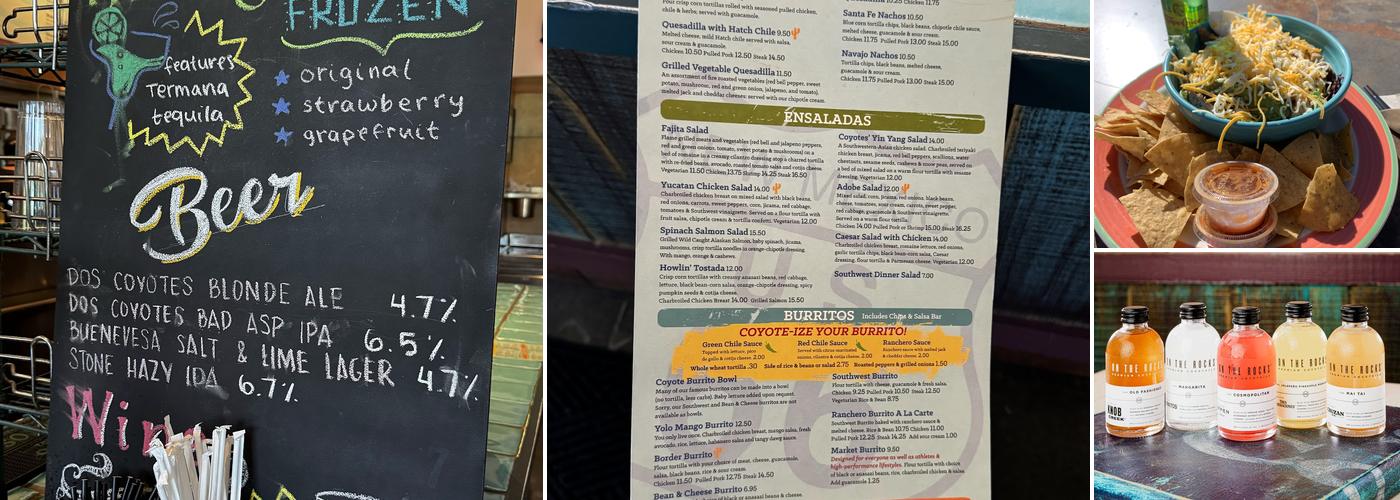 FROZEN
features
Termana
tequila
original
strawberry
grapefruit
Beer
DOS COYOTES BLONDE ALE 4.7%
DOS COYOTES BAD ASP IPA 6.5%
BUENEVESA SALT & LIME LAGER 4.7%
STONE HAZY IPA 6.7%
Four crisp corn tortillas rolled with seasoned pulled chicken,
chile & herbs; served with guacamole.
Quesadilla with Hatch Chile 9.50
Melted cheese, mild Hatch chile served with salsa,
sour cream & guacamole.
Chicken 10.50 Pulled Pork 12.50 Steak 14.50
Grilled Vegetable Quesadilla 11.50
An assortment of fire roasted vegetables (red bell pepper, sweet
potato, mushroom, red and green onion, jalapeno, and tomato),
melted jack and cheddar cheeses; served with our chipotle cream.
Santa Fe Nachos 10.50
Blue corn tortilla chips, black beans, chipotle chile cheese,
sour cream & guacamole.
Chicken 11.75 Pulled Pork 13.00 Steak 15.00
Navajo Nachos 10.50
Tortilla chips, black beans, melted cheese,
guacamole & sour cream.
Chicken 11.75 Pulled Pork 13.00 Steak 15.00
ENSALADAS
Fajita Salad
Flame grilled meats and vegetables (red bell and jalapeno peppers,
red and green onions, tomato, sweet potato & mushrooms) on a
bed of romaine in a creamy cilantro dressing atop a charred tortilla
with re-fried beans, avocado, roasted tomato salsa and cotija cheese.
Vegetarian 11.50 Chicken 13.75 Shrimp 14.25 Steak 16.50
Yucatan Chicken Salad 14.00
Charbroiled chicken breast on mixed salad with black beans,
red onions, carrots, sweet peppers, corn, jicama, red cabbage,
tomatoes & Southwest vinaigrette. Served on a flour tortilla with
fruit salsa, chipotle cream & tortilla confetti. Vegetarian 12.00
Spinach Salmon Salad 15.50
Grilled Wild Caught Alaskan Salmon, baby spinach, jicama,
mushrooms, crisp tortilla noodles in orange-chipotle dressing.
With mango, orange & cashews.
Howlin' Tostada 12.00
Crisp corn tortillas with creamy anasazi beans, red cabbage,
lettuce, black bean-corn salsa, orange-chipotle dressing, spicy
pumpkin seeds & cotija cheese.
Charbroiled Chicken Breast 14.00 Grilled Salmon 15.50
Coyotes' Yin Yang Salad 14.00
A Southwestern-Asian chicken salad. Charbroiled teriyaki
chicken breast, jicama, red bell peppers, scallions, water
chestnuts, sesame seeds, cashews & moor peas, served on
a bed of mixed salad on a warm flour tortilla with sesame
dressing. Vegetarian 12.00
Adobe Salad 12.00
Mixed salad, corn, jicama, red onions, black beans,
cheese, tomatoes, sour cream, carrots, sweet pepper,
red cabbage, guacamole & Southwest vinaigrette.
Served on a warm flour tortilla.
Chicken 14.00 Pulled Pork or Shrimp 15.00 Steak 16.25
Caesar Salad with Chicken 14.00
Charbroiled chicken breast, romaine lettuce, red onions,
garlic tortilla chips, black bean-corn salsa, Caesar
dressing, flour tortilla & Parmesan cheese. Vegetarian 12.00
Southwest Dinner Salad 7.00
BURRITOS Includes Chips & Salsa Bar
COYOTE-IZE YOUR BURRITO!
Green Chile Sauce
Topped with lettuce, pico
de gallo & cotija cheese. 2.00
Red Chile Sauce
Served with citrus-marinated
onions, cilantro & cotija cheese. 2.00
Ranchero Sauce
Ranchero sauce with melted jack
& cheddar cheese. 2.00
Whole wheat tortilla .30 Side of rice & beans or salad 2.75 Roasted peppers & grilled onions 1.50
Coyote Burrito Bowl
Many of our famous burritos can be made into a bowl
(no tortilla, less carbs). Baby lettuce added upon request.
Sorry, our Southwest and Bean & Cheese burritos are not
available as bowls.
Yolo Mango Burrito 12.50
You only live once. Charbroiled chicken breast, mango salsa, fresh
avocado, rice, lettuce, habanero salsa and tangy dawg sauce.
Border Burrito
Flour tortilla with your choice of meat, cheese, guacamole,
salsa, black beans, rice & sour cream.
Chicken 11.50 Pulled Pork 12.50 Steak 14.50
Bean & Cheese Burrito 6.95
Southwest Burrito
Flour tortilla with cheese, guacamole & fresh salsa.
Chicken 9.25 Pulled Pork 10.50 Steak 12.50
Vegetarian Rice & Bean 8.75
Ranchero Burrito A La Carte
Southwest Burrito baked with ranchero sauce &
melted cheese. Rice & Bean 10.75 Chicken 11.00
Pulled Pork 12.25 Steak 14.25 Add sour cream 1.00
Market Burrito 9.50
Designed for everyone as well as athletes &
high-performance lifestyles. Flour tortilla with choice
of black or anasazi beans, rice, charbroiled chicken & salsa
Add guacamole 1.25
ON THE ROCKS
OLD FASHIONED
KNOB
CREEK
ON THE ROCKS
MARGARITA
ON THE ROCKS
COSMOPOLITAN
ON THE ROCKS
ON THE ROCKS
MAI TAI